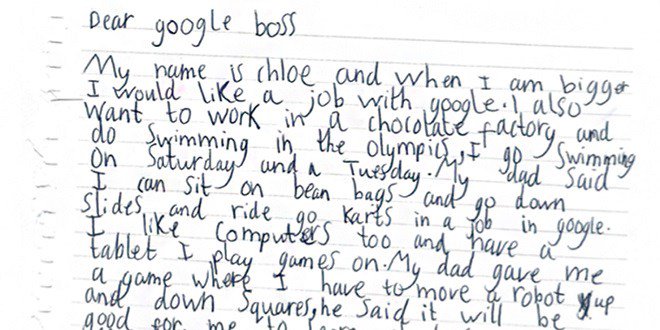 Dear google boss
My name is chloe and when I am bigger
I would like a job with google. I also
want to work in a chocolate factory and
do swimming in the olympics, I go swimming
on Saturday and a Tuesday. My dad said
I can sit on bean bags and go down
slides and ride go karts in a job in google.
I like computers too and have a
tablet I play games on. My dad gave me
a game where I have to move a robot up
and down squares, he said it will be
good for me to